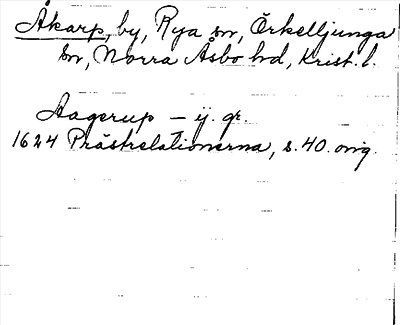 Åkarp, by, Rya sn, Örkelljunga
sn, Norra Åsbo hd, Krist. l.
Aagerup – ij. gr.
1624 Prästrelationerna, s. 40. orig.